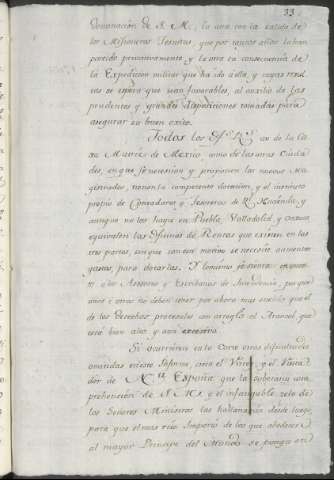 33
Dominacion de S. M., la una con la salida de
los Misioneros Jesuitas, que por tantos años la han
poseido privativamente, y la otra la consecuencia de
la Expedicion militar que ha ido a ella, y cuyas resul
tas se espera que sean favorables, al auxilio de las
prudentes y grandes disposiciones tomadas para
asegurar su buen exito.
Todos los Of.s R.s en de la Ca
xa Matriz de Mexico, como de las otras Ciuda
des, en que se versen y proponen las nuevas Ma
gistrados, tienen la competente dotacion, y el instituto
propio de Contadores y Tesoreros de R.l Hacienda, y
aunque no los haya en Puebla, Valladolid, y Oaxaca,
equivalen las Oficinas de Rentas que existen en las
tres partes, sin que con este motivo se necesite aumentar
gastos, para dotarlas. Y lo mismo se sienta en quan
to a los Asesores y Escribanos de Intendencia, pues que
unos y otros no deben tener por ahora mas sueldo que el
de los Derechos procesales con arreglo al Arancel, que
está bien alto y aun excesivo.
Si ocurrieren en la Corte otras dificultades
omitidas en este Informe, creo el Virrey, y el Visita
dor de N.va España que la soberana com
prehension de S. M. y el infatigable zelo de
los Señores Ministros las hallanarán desde luego,
para que el mas rico Imperio de los que obedecen
al mayor Principe del Mundo se ponga en